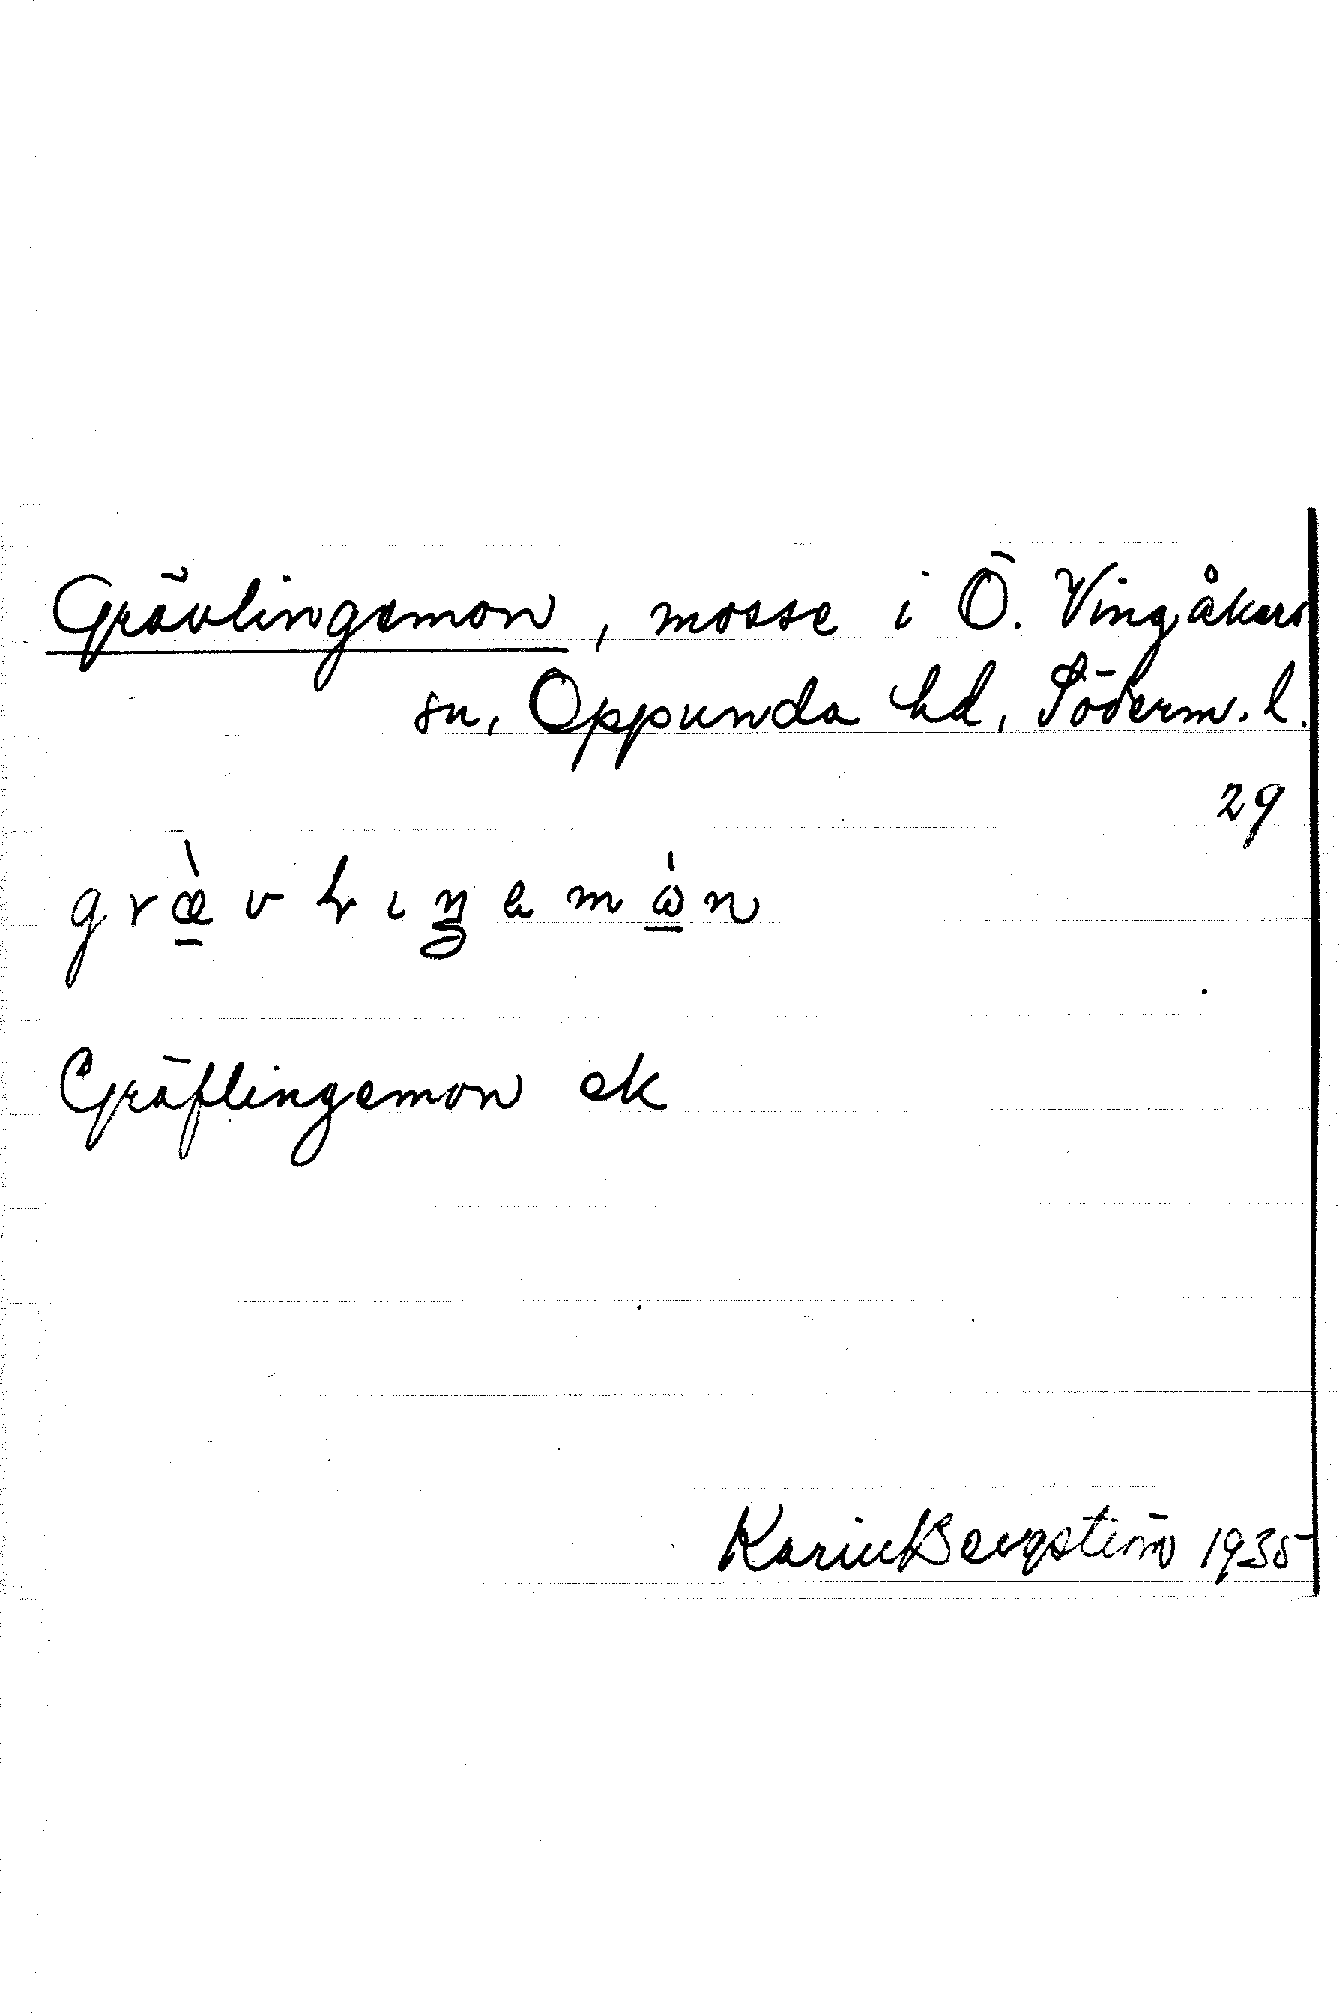 Grävlingemon, mosse i Ö. Vingåkers
sn, Oppunda hd, Söderm. l.
29
Gräflingemon ek
Karin Bergström 1935